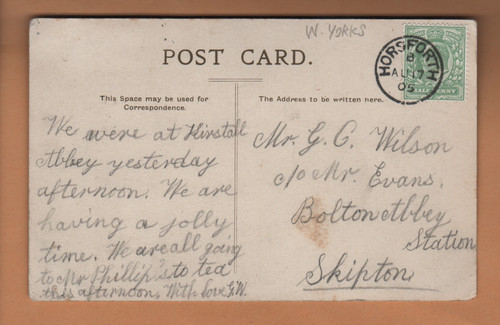 W. YORKS
POST CARD.
HORSFORTH
B
AU 17
05
HALFPENNY
This Space may be used for
Correspondence.
The Address to be written here.
We were at Kirstall
Abbey yesterday
afternoon. We are
having a jolly
time. We are all going
to Mr Phillip's to tea
this afternoon. With love G.W.
Mr. G. C. Wilson
c/o Mr. Evans.
Bolton Abbey
Station
Skipton